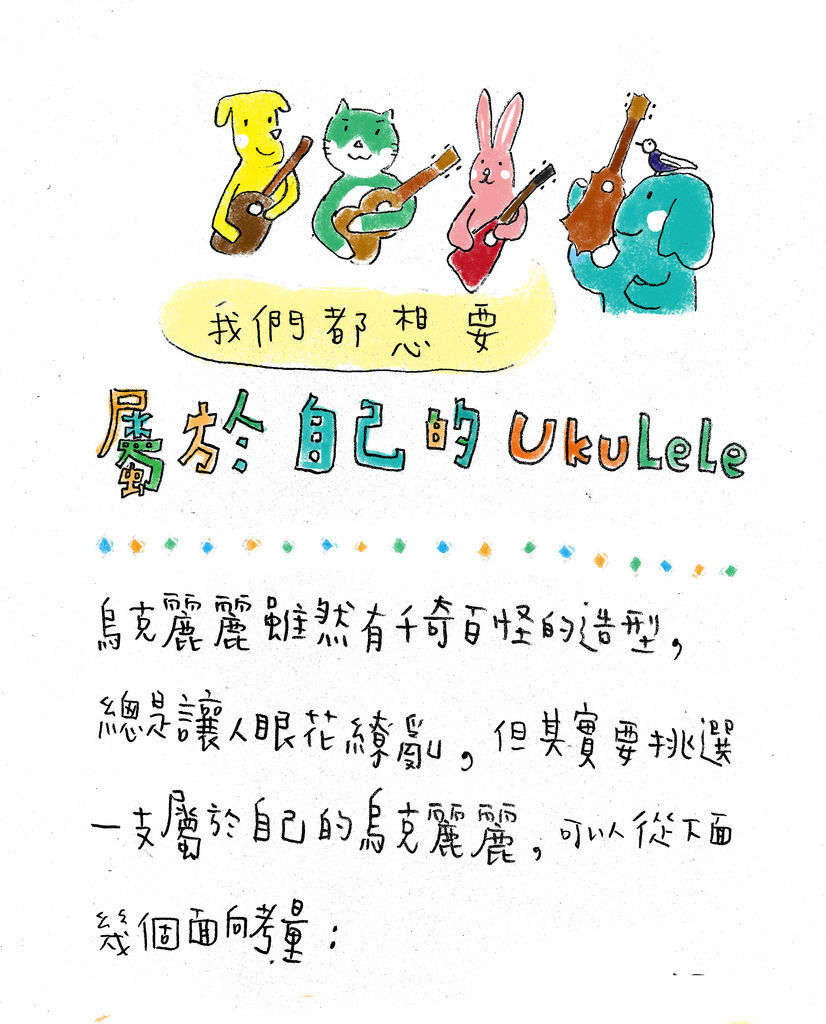 我們都想要
屬於自己的ukuLeLe
烏克麗麗雖然有千奇百怪的造型，
總是讓人眼花繚亂，但其實要挑選
一支屬於自己的烏克麗麗，可以從下面
幾個面向考量：